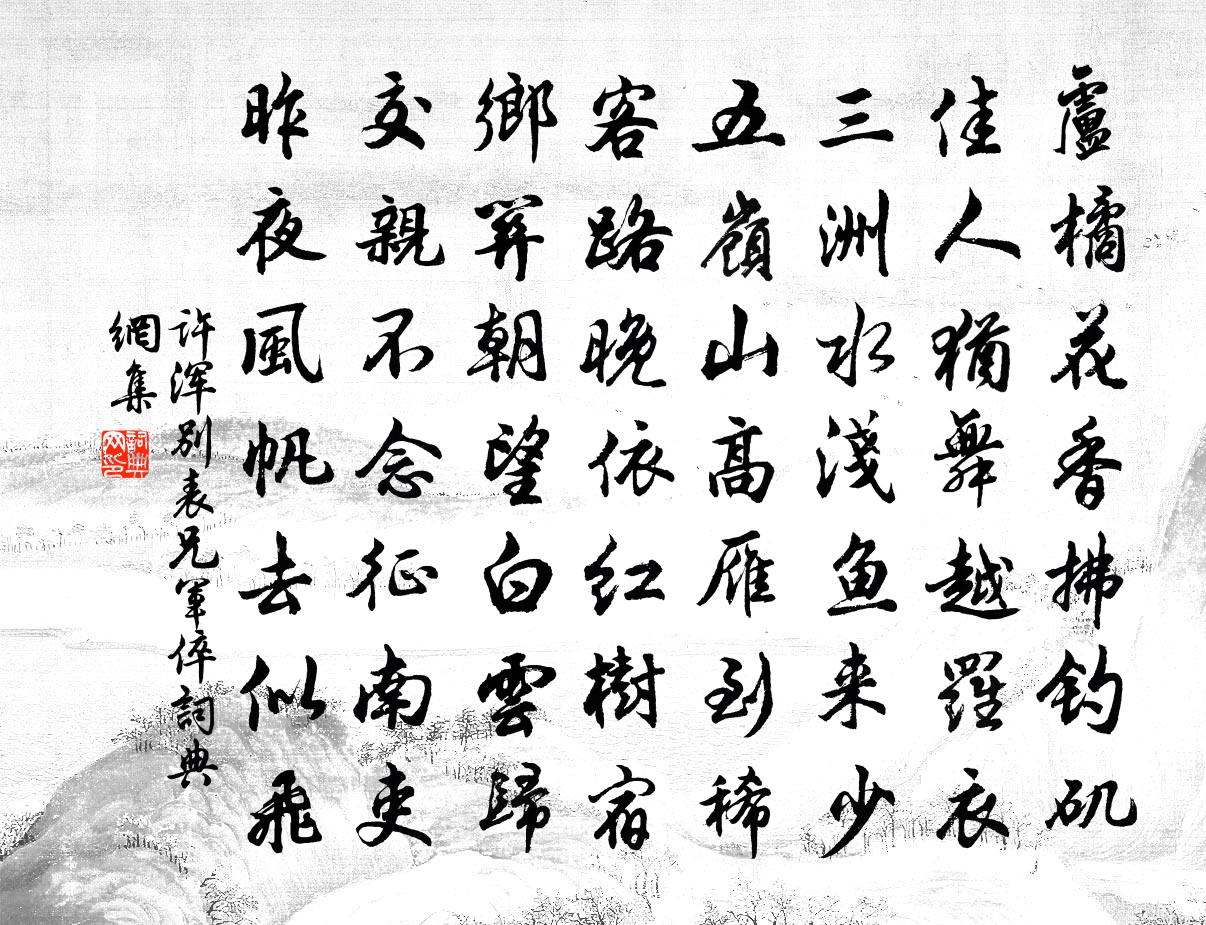 盧橘花香拂釣矶
佳人猶舞越羅衣
三洲水淺魚来少
五嶺山高雁到稀
客路晚依红樹宿
鄉關朝望白雲歸
交親不念征南吏
昨夜風帆去似飛
許渾別表兄軍倅詞典
網集